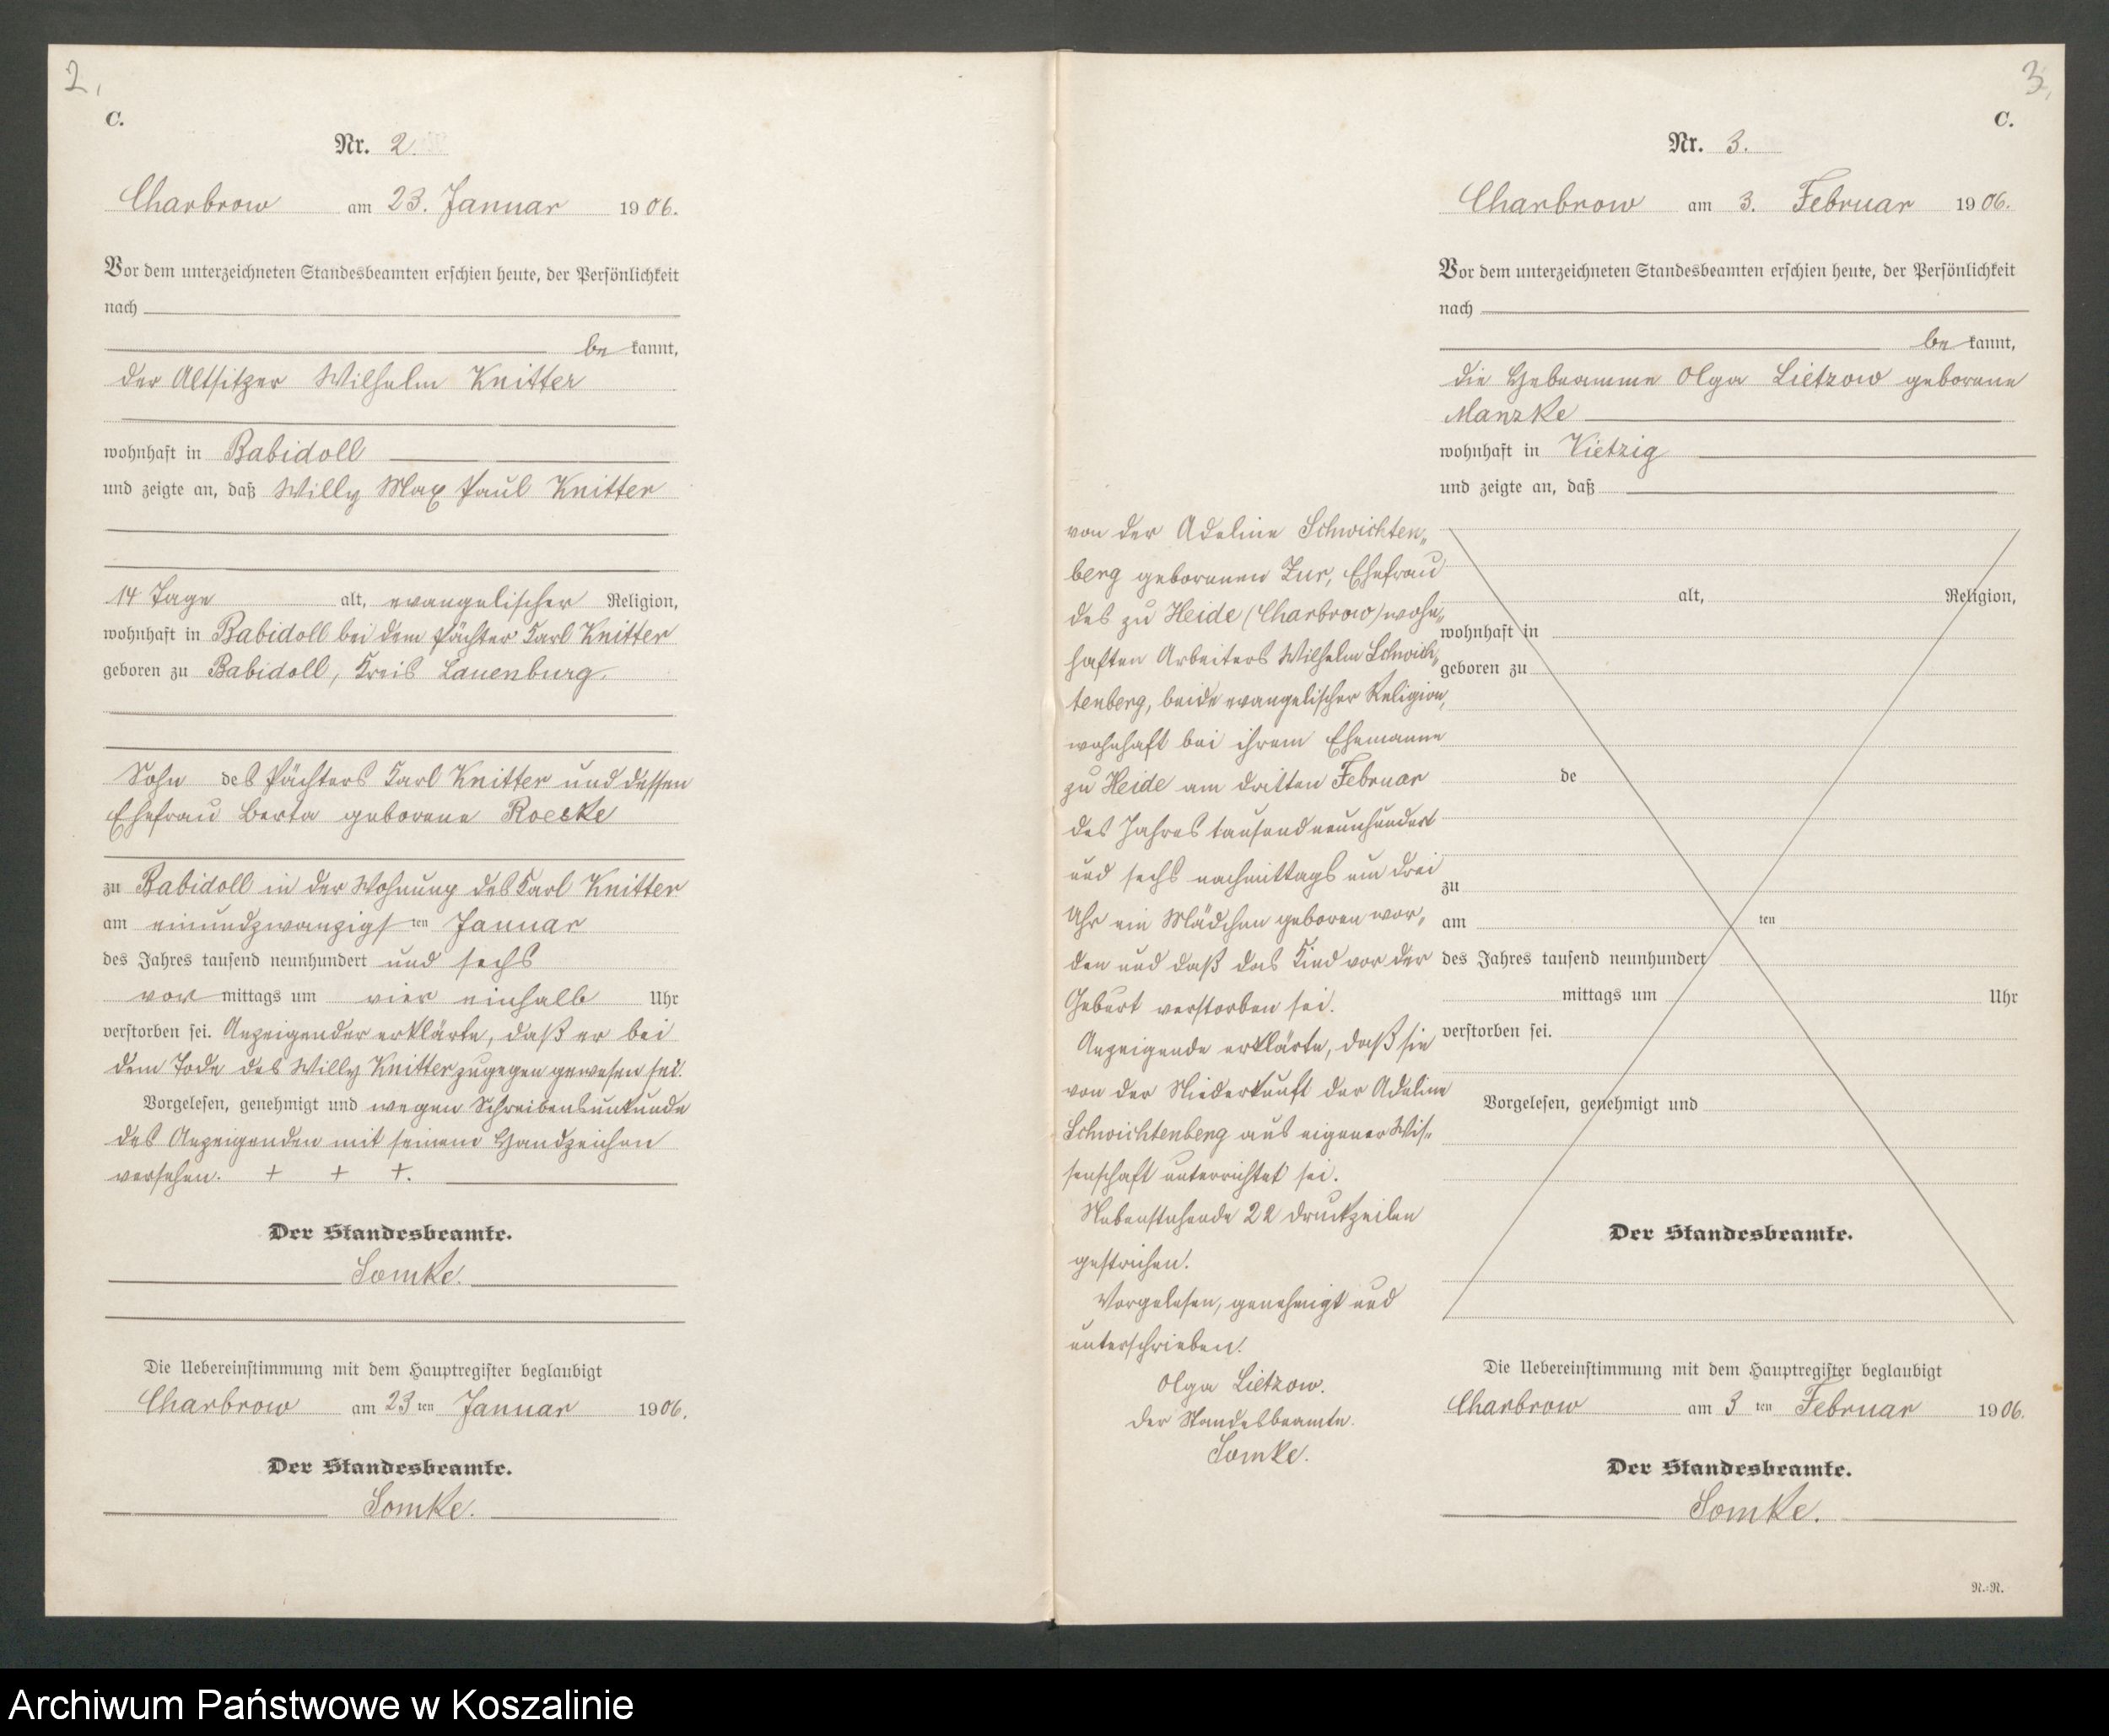 2,
C.
Nr. 2.
Charbrow am 23. Januar 1906.
Vor dem unterzeichneten Standesbeamten erschien heute, der Persönlichkeit
nach
be kannt,
der Altsitzer Wilhelm Knitter
wohnhaft in Babidoll
und zeigte an, daß Willy Max Paul Knitter
14 Tage alt, evangelischer Religion,
wohnhaft in Babidoll bei dem Pächter Karl Knitter
geboren zu Babidoll, Kreis Lauenburg.
Sohn des Pächters Karl Knitter und dessen
Ehefrau Berta geborene Roeske
zu Babidoll in der Wohnung des Karl Knitter
am einundzwanzigsten Januar
des Jahres tausend neunhundert und sechs
vor mittags um vier einhalb Uhr
verstorben sei. Anzeigender erklärte, daß er bei
dem Tode des Willy Knitter zugegen gewesen sei.
Vorgelesen, genehmigt und wegen Schreibensunkunde
des Anzeigenden mit seinem Handzeichen
versehen. + + +.
Der Standesbeamte.
Somke.
Die Uebereinstimmung mit dem Hauptregister beglaubigt
Charbrow am 23 ten Januar 1906.
Der Standesbeamte.
Somke.
3,
C.
Nr. 3.
Charbrow am 3. Februar 1906.
Vor dem unterzeichneten Standesbeamten erschien heute, der Persönlichkeit
nach
be kannt,
die Hebeamme Olga Lietzow geborene
Manzke
wohnhaft in Vietzig
und zeigte an, daß
von der Adeline Schwichten„
berg geborenen Zur, Ehefrau
des zu Heide (Charbrow) wohn„
haften Arbeiters Wilhelm Schwich„
tenberg, beide evangelischer Religion,
wohnhaft bei ihrem Ehemanne
zu Heide am dritten Februar
des Jahres tausend neunhundert
und sechs nachmittags um drei
Uhr ein Mädchen geboren wor„
den und daß das Kind vor der
Geburt verstorben sei.
Anzeigende erklärte, daß sie
von der Niederkunft der Adeline
Schwichtenberg aus eigener Wis„
senschaft unterrichtet sei.
Nebenstehende 22 Druckzeilen
gestrichen.
Vorgelesen, genehmigt und
unterschrieben.
Olga Lietzow.
Der Standesbeamte.
Somke.
alt, Religion,
wohnhaft in
geboren zu
de
zu
am ten
des Jahres tausend neunhundert
mittags um Uhr
verstorben sei.
Vorgelesen, genehmigt und
Der Standesbeamte.
Die Uebereinstimmung mit dem Hauptregister beglaubigt
Charbrow am 3 ten Februar 1906.
Der Standesbeamte.
Somke.
N.=R.
Archiwum Państwowe w Koszalinie